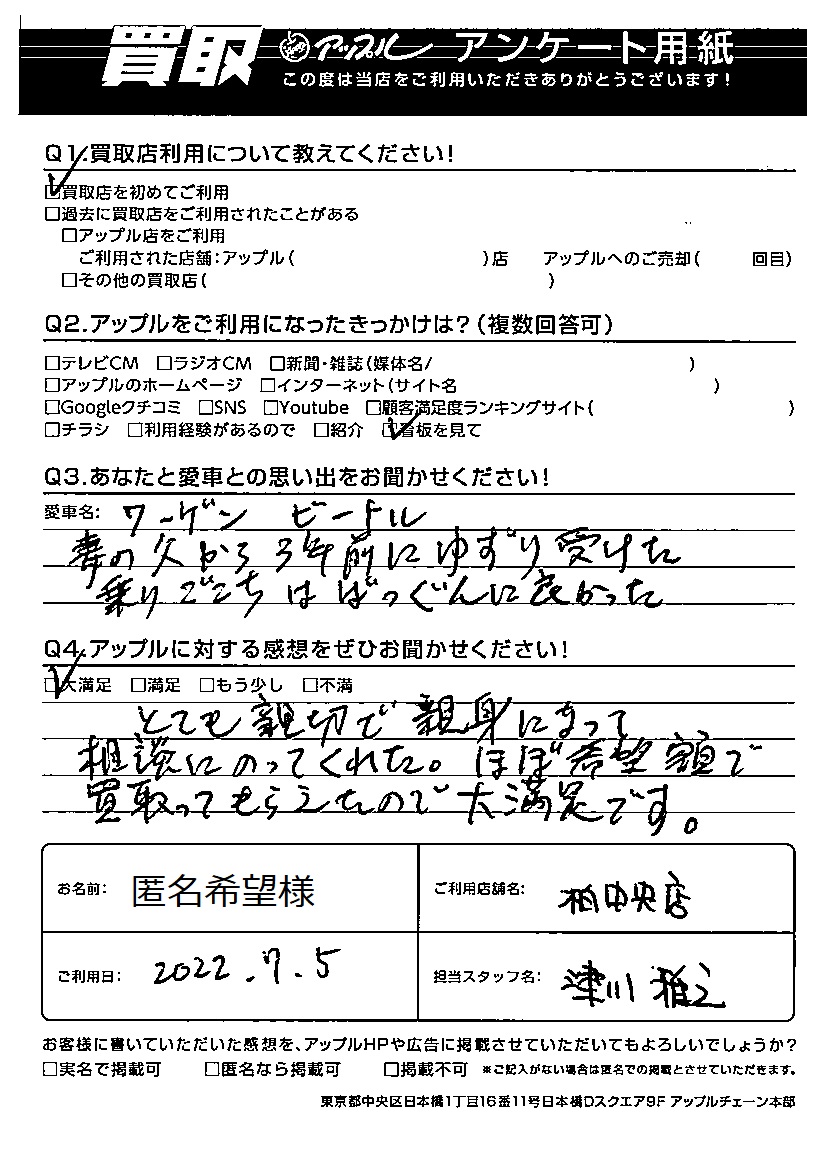 買取 アップル アンケート用紙
この度は当店をご利用いただきありがとうございます!
Q1.買取店利用について教えてください!
☑買取店を初めてご利用
□過去に買取店をご利用されたことがある
□アップル店をご利用
ご利用された店舗:アップル( )店 アップルへのご売却( 回目)
□その他の買取店( )
Q2.アップルをご利用になったきっかけは?(複数回答可)
□テレビCM □ラジオCM □新聞・雑誌(媒体名/ )
□アップルのホームページ □インターネット(サイト名 )
□Googleクチコミ □SNS □Youtube □顧客満足度ランキングサイト( )
□チラシ □利用経験があるので □紹介 ☑看板を見て
Q3.あなたと愛車との思い出をお聞かせください!
愛車名: ワーゲン ビートル
妻の父から3年前にゆずり受けた
乗りごこちはばっぐんに良かった
Q4.アップルに対する感想をぜひお聞かせください!
☑大満足 □満足 □もう少し □不満
とても親切で親身になって
相談にのってくれた。ほぼ希望額で
買取ってもらえたので大満足です。
お名前: 匿名希望様 ご利用店舗名: 柏中央店
ご利用日: 2022.7.5 担当スタッフ名: 津川 雅之
お客様に書いていただいた感想を、アップルHPや広告に掲載させていただいてもよろしいでしょうか?
□実名で掲載可 □匿名なら掲載可 □掲載不可 ※ご記入がない場合は匿名での掲載とさせていただきます。
東京都中央区日本橋1丁目16番11号日本橋Dスクエア9F アップルチェーン本部